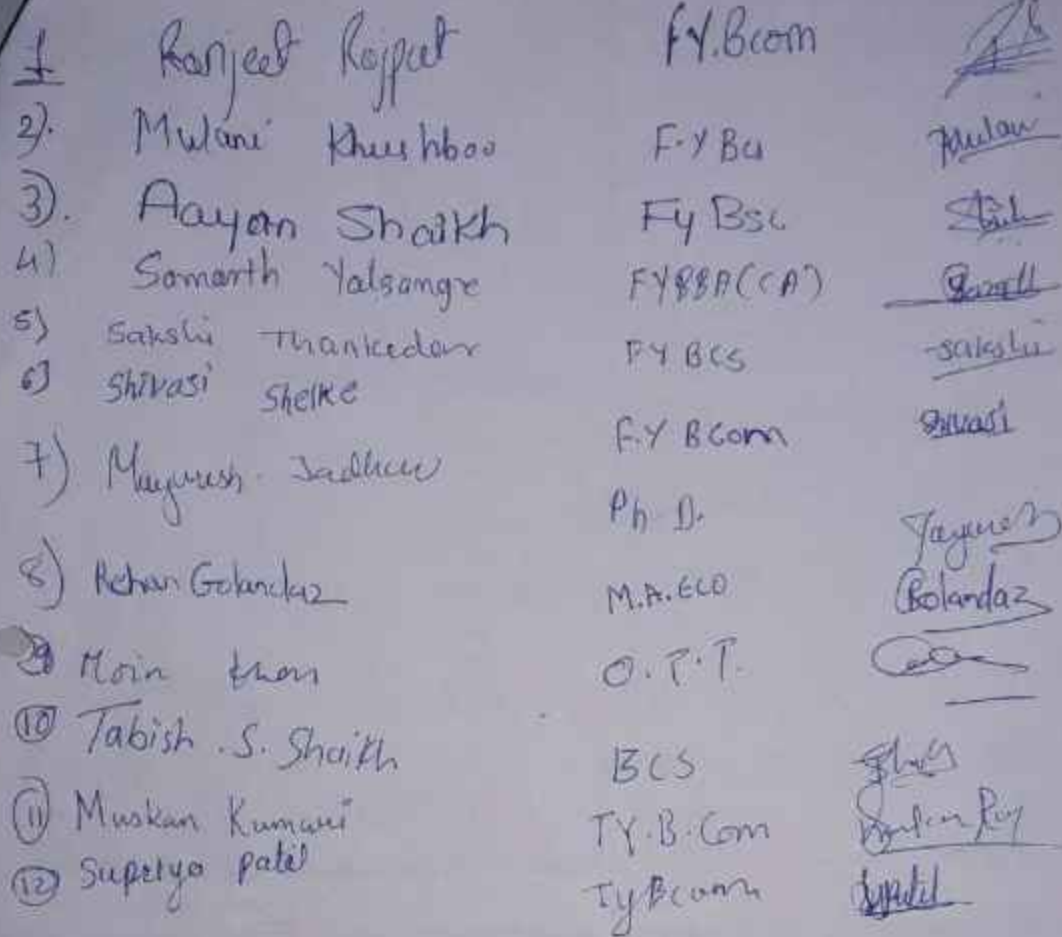 1 Ranjeet Rajput FY.Bcom
2). Mulani Khushboo F.Y BCs Mulani
3). Aayan Shaikh Fy Bsc
4) Samarth Yalsangre FYBBA(CA)
5) Sakshi Thankedar FY BCS sakshi
6) Shivasi Shelke F.Y BCom Shivasi
7) Mayuresh Jadhav Ph.D.
8) Rehan Golandaz M.A. ECO Golandaz
9 Moin khan O.T.T.
10 Tabish .S. Shaikh BCS
11 Muskan Kumari TY.B.Com
12 Supriya patil TyBcom